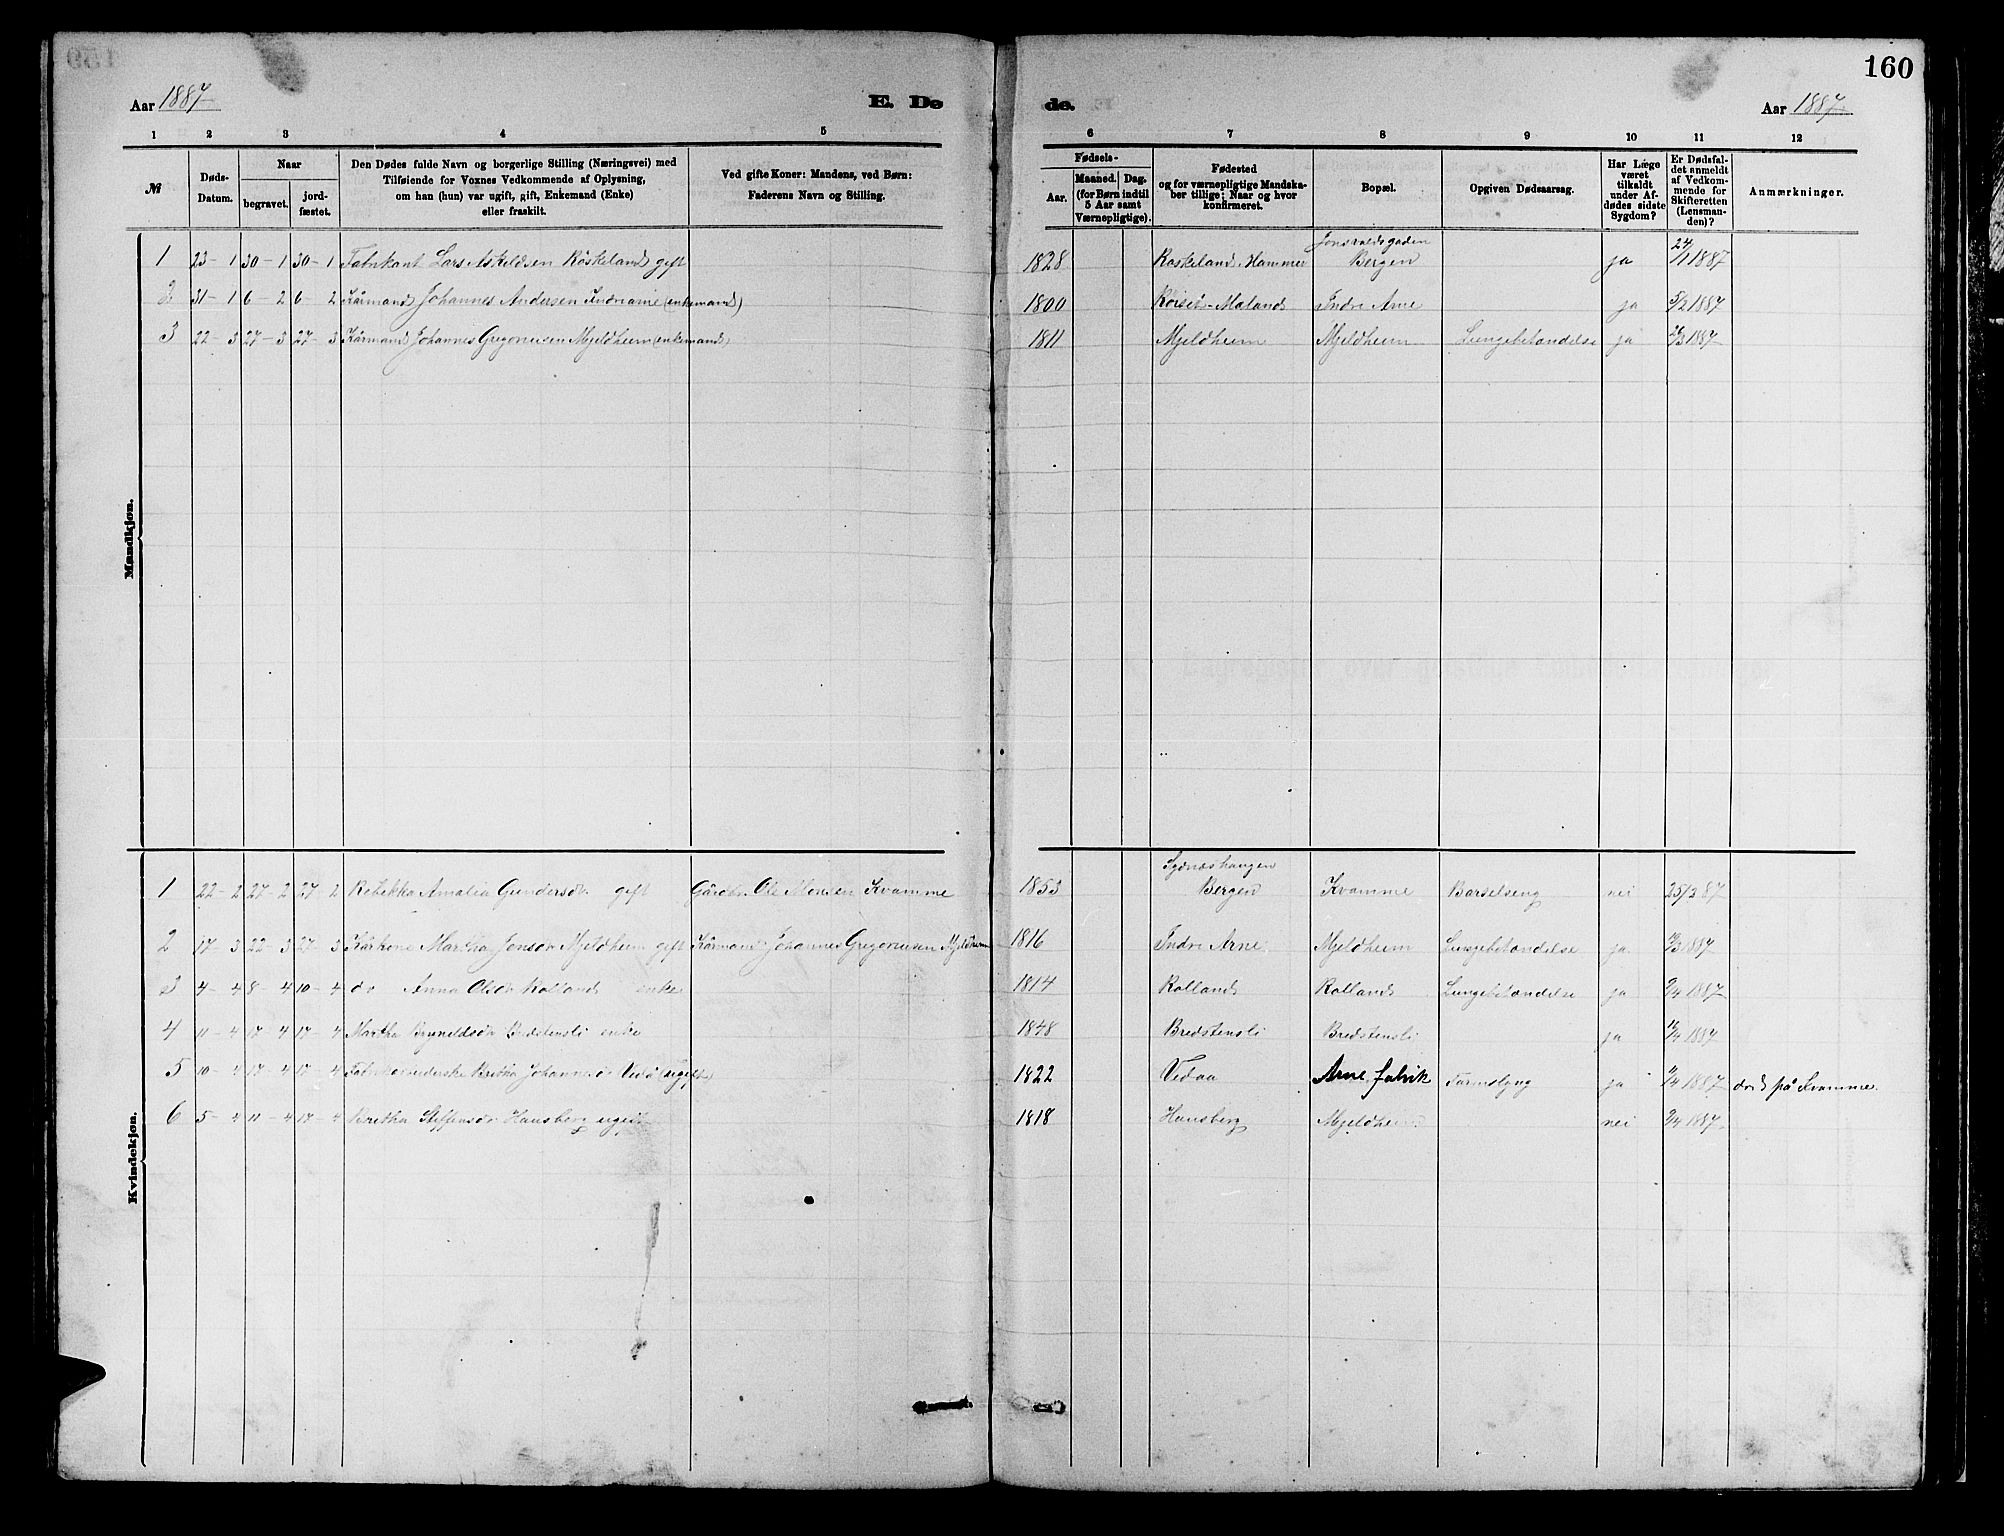 160
Aar 1887
E. Dø
de.
Aar 1887
1 2 3 4 5 6 7 8 9 10 11 12
№
Døds-
Datum.
Naar
begravet.
jord-
fæstet.
Den Dødes fulde Navn og borgerlige Stilling (Næringsvei) med
Tilføiende for Voxnes Vedkommende af Oplysning,
om han (hun) var ugift, gift, Enkemand (Enke)
eller fraskilt.
Ved gifte Koner: Mandens, ved Børn:
Faderens Navn og Stilling.
Fødsels-
Aar.
Maaned. Dag.
(for Børn indtil
5 Aar samt
Værnepligtige).
Fødested
og for værnepligtige Mandska-
ber tillige: Naar og hvor
konfirmeret.
Bopæl.
Opgiven Dødsaarsag.
Har Læge
været
tilkaldt
under Af-
dødes sidste
Sygdom?
Er Dødsfal-
det anmeldt
af Vedkom-
mende for
Skifteretten
(Lensman-
den)?
Anmærkninger.
Mandkjøn.
1 23-1 30-1 30-1 Fabrikant Lars Askeldsen Röskeland gift 1828 Roskeland Hammer Bergen ja 24/1 1887
2 31-1 6-2 6-2 Kårmand Johannes Andersen Indrearne (enkemand) 1800 Maland Indre Arne ja 5/2 1887
3 22-3 27-3 27-3 Kårmand Johannes Gregoriusen Mjeldheim (enkemand) 1811 Mjeldheim Mjeldheim Lungebetændelse ja 26/3 1887
Kvindekjøn.
1 22-2 27-2 27 2 Rebekka Amalia Gundersdr gift Gårdbr. Ole Monsen Kvamme 1853 Sydneshaugen Bergen Kvamme Barselseng nei 25/2 87
2 17-3 22-3 27-3 Kårkone Martha Jonsdr Mjeldheim gift Kårmand Johannes Gregoriusen Mjeldheim 1816 Indre Arne Mjeldheim Lungebetændelse ja /3 1887
3 4-4 8-4 10-4 do Anna Olsdr Rolland enke 1814 Rolland Rolland Lungebetændelse ja /4 1887
4 11-4 17-4 17-4 Martha Brynildsdr Bredstensli enke 1848 Bredstensli Bredstensli ja /4 1887
5 10-4 17-4 17-4 Fabrikarbeiderske Britha Johannesdr Vedå (ugift) 1822 Vedaa Arne fabrik Tarmslyng ja /4 1887 död på Kvamme.
6 5-4 11-4 17-4 Britha Steffensdr Hausberg ugift 1818 Hausberg Mjeldheim nei /4 1887